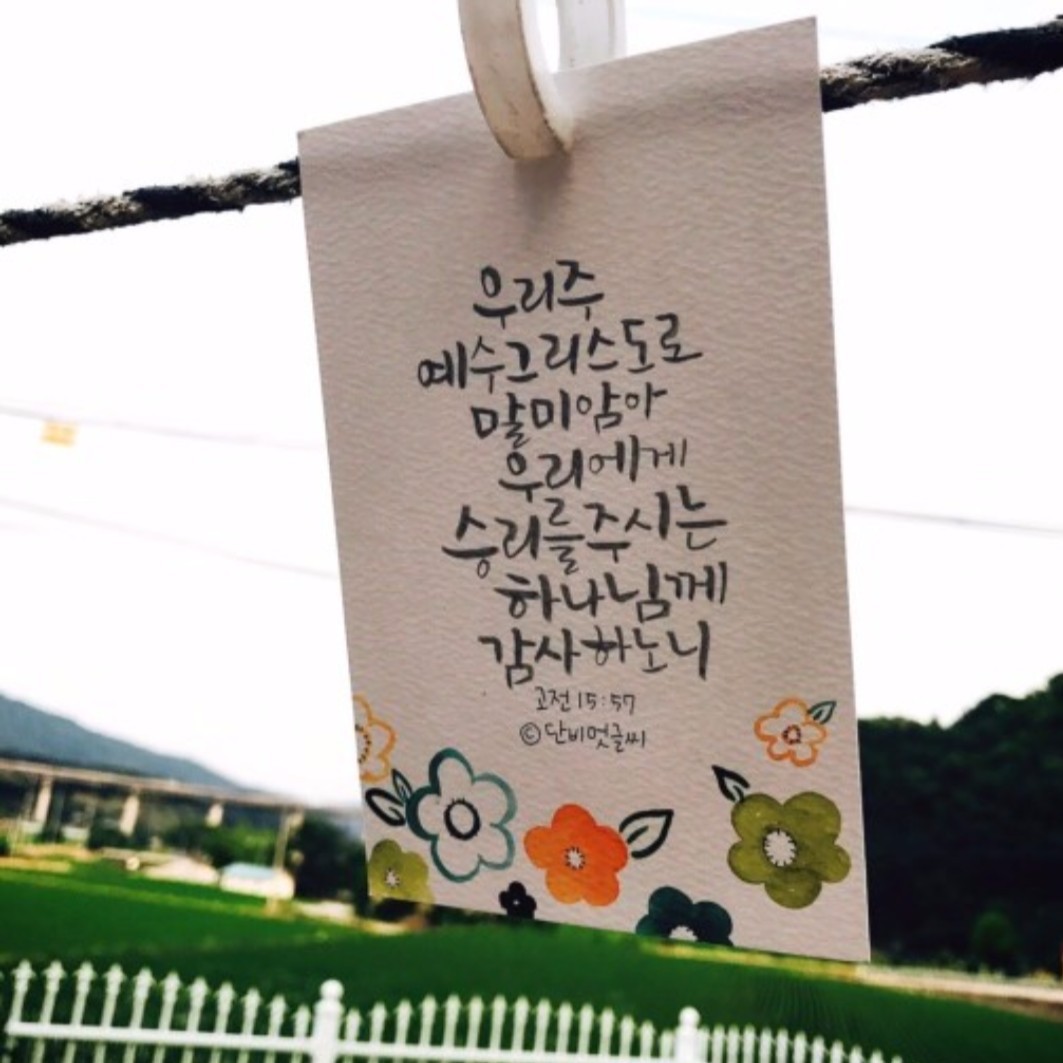 우리주
예수그리스도로
말미암아
우리에게
승리를주시는
하나님께
감사하노니
고전 15:57
©단비멋글씨